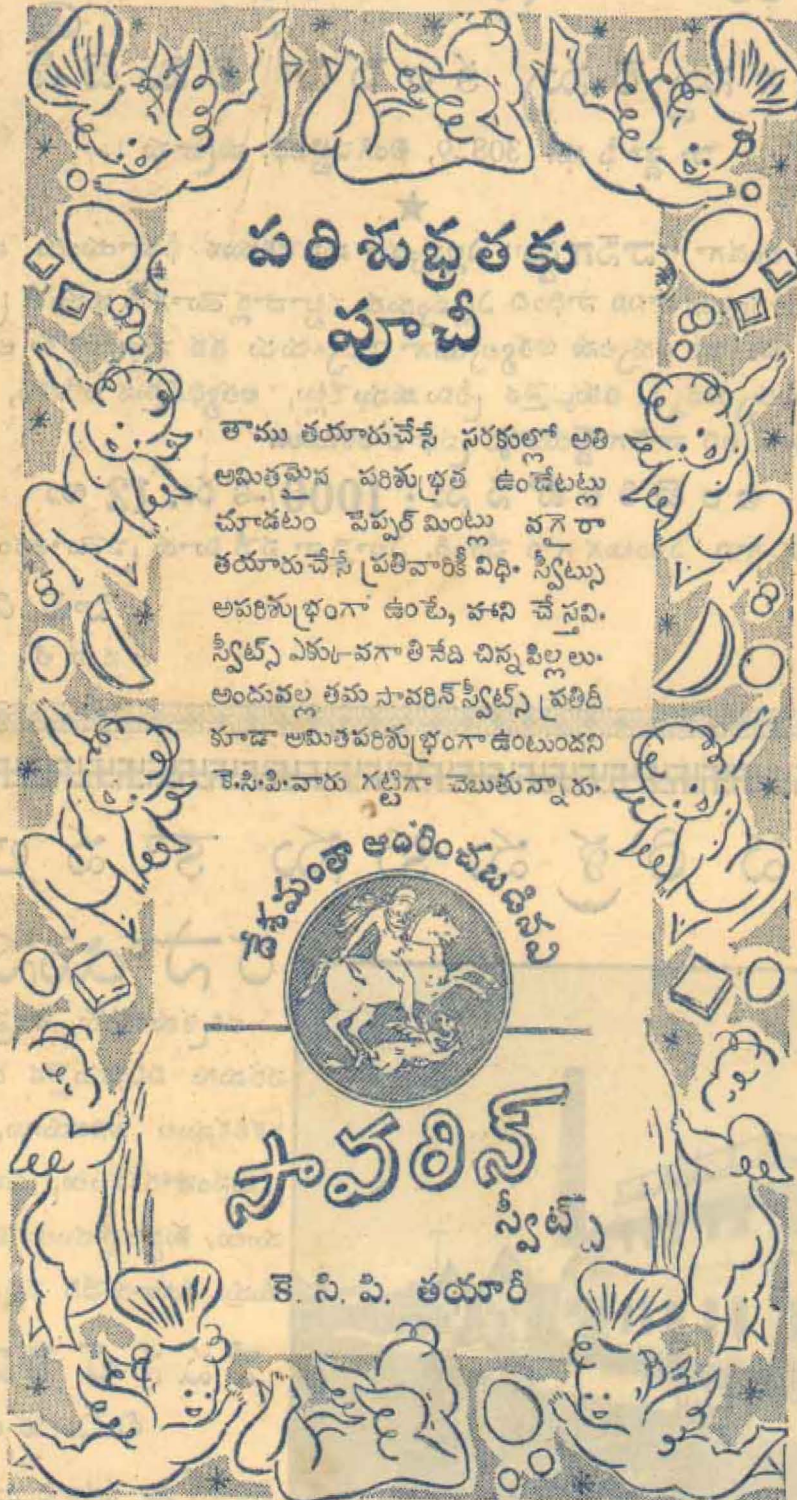 పరిశుభ్రతకు
పూచీ
తాము తయారుచేసే సరకుల్లో అతి
అమితమైన పరిశుభ్రత ఉండేటట్లు
చూడటం పెప్పర్ మింట్లు వగైరా
తయారుచేసే ప్రతివారికీ విధి. స్వీట్సు
అపరిశుభ్రంగా ఉంటే, హాని చేస్తవి.
స్వీట్స్ ఎక్కువగా తినేది చిన్న పిల్లలు.
అందువల్ల తమ సావరిన్ స్వీట్స్ ప్రతిదీ
కూడా అమితపరిశుభ్రంగా ఉంటుందని
కె.సి.పి.వారు గట్టిగా చెబుతున్నారు.
దేశమంతా ఆదరించబడినవి
సావరిన్
స్వీట్స్
కె. సి. పి. తయారీ